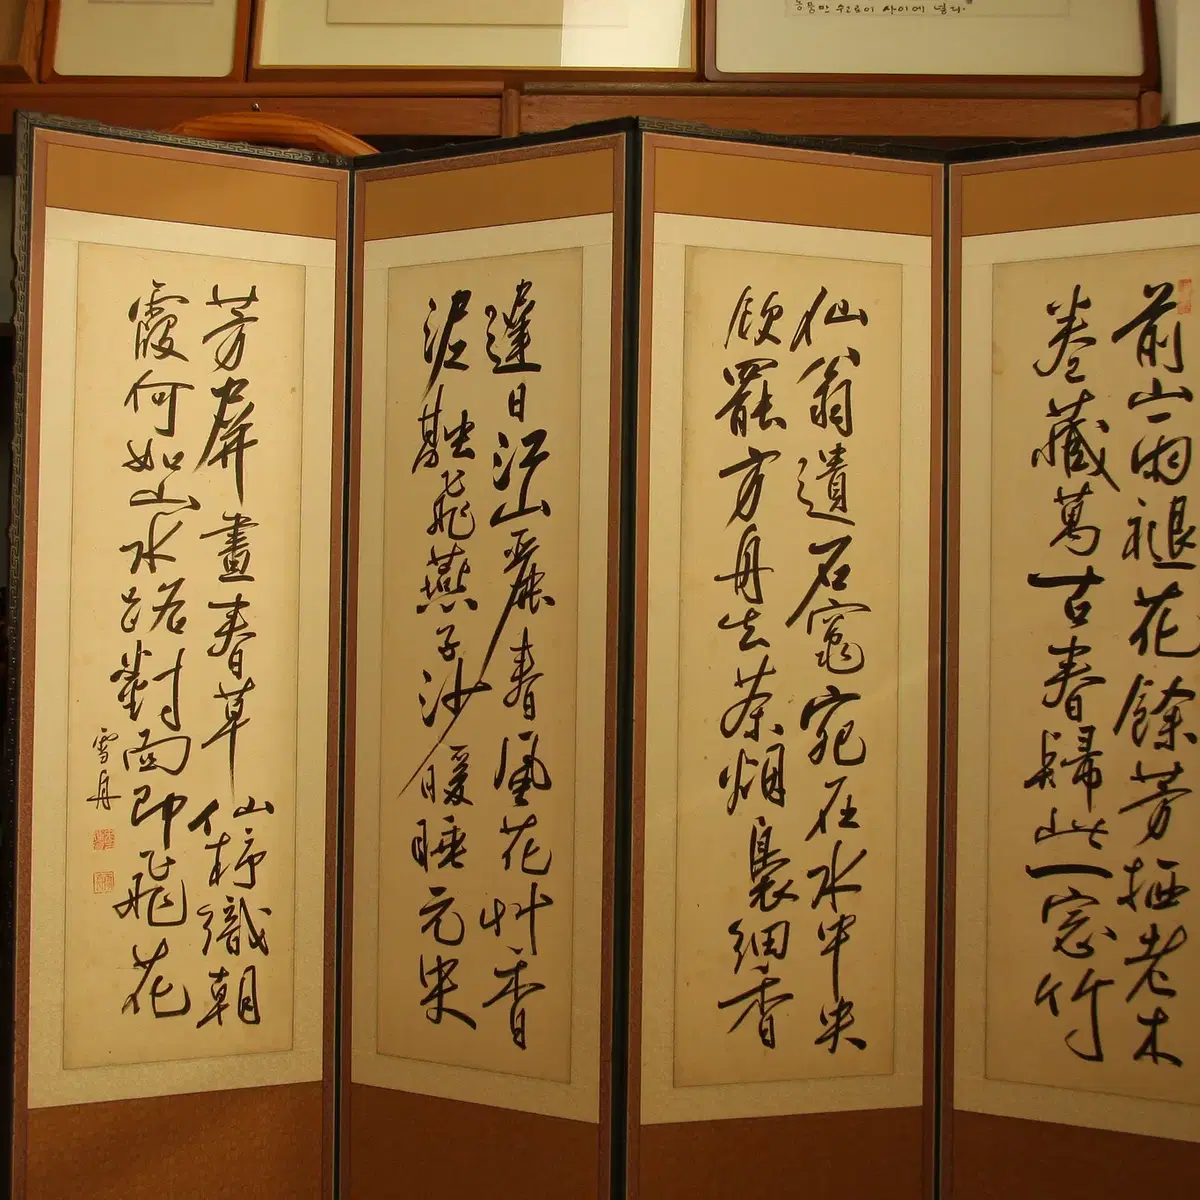 사이에
前山雨褪花餘芳栖老木
卷藏萬古春歸此一窓竹
仙翁遺石竈宛在水中央
飲罷方舟去茶烟裊細香
遲日江山麗春風花艸香
泥融飛燕子沙暖睡元央
芳屏畫春草仙杼織朝
霞何如山水路對面即飛花
雪舟